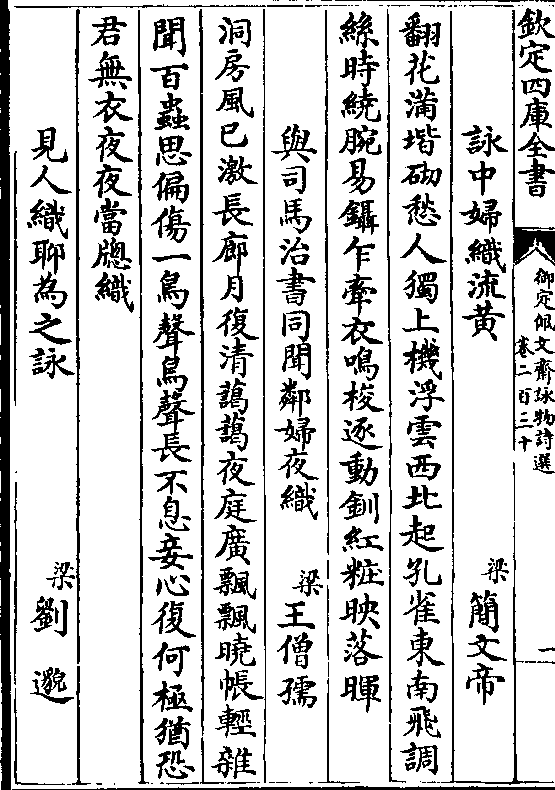 欽定四庫全書
御定佩文齋詠物詩選
卷二百三十
一
詠中婦織流黃 梁 簡文帝
翻花滿堦砌愁人獨上機浮雲西北起孔雀東南飛調
絲時繞腕易鑷乍牽衣鳴梭逐動釧紅粧映落暉
與司馬治書同聞鄰婦夜織 梁 王僧孺
洞房風已激長廊月復清藹藹夜庭廣飄飄曉帳輕雜
聞百蟲思偏傷一鳥聲鳥聲長不息妾心復何極猶恐
君無衣夜夜當牕織
見人織聊為之詠 梁 劉邈